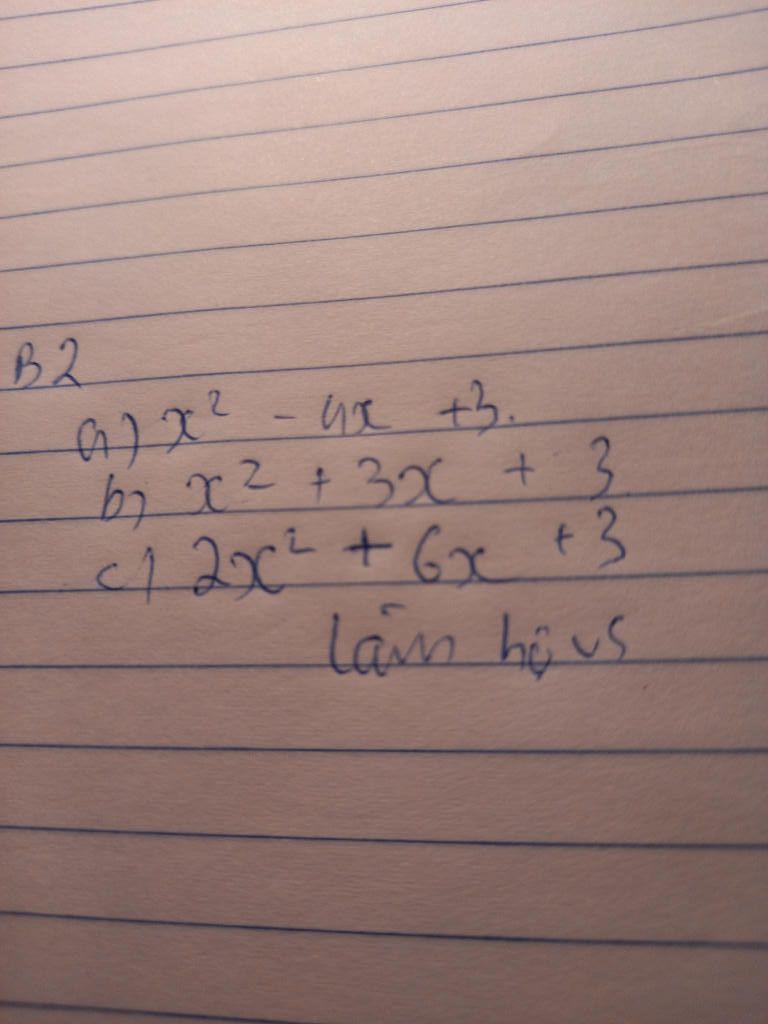 B2
a) x² - 4x + 3.
b) x² + 3x + 3
c) 2x² + 6x + 3
làm hộ vs